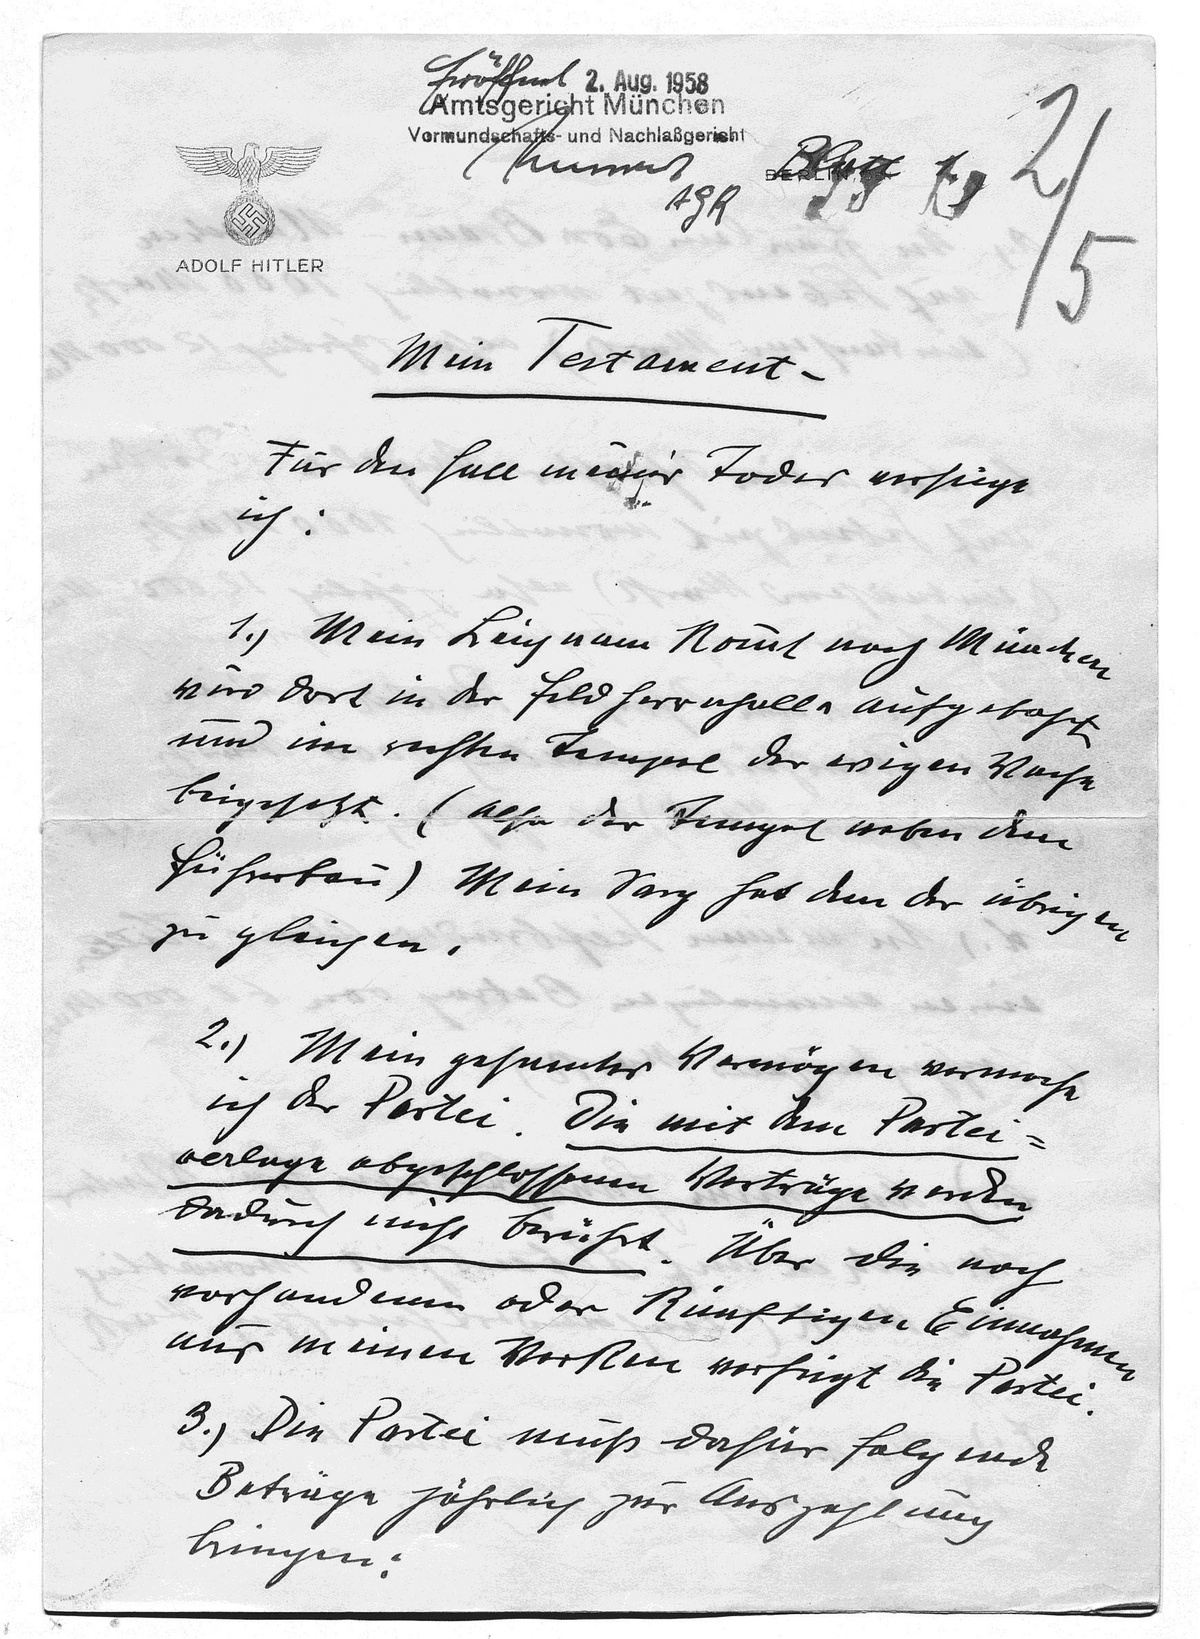 Eröffnet 2. Aug. 1958
Amtsgericht München
Vormundschafts- und Nachlaßgericht
AGR
BERLIN
2/5
ADOLF HITLER
Mein Testament-
Für den Fall meines Todes verfüge
ich:
1.) Mein Leichnam kommt nach München
wird dort in der Feldherrnhalle aufgebahrt
und im rechten Tempel der ewigen Wache
beigesetzt. (Also der Tempel neben dem
Führerbau) Mein Sarg hat dem der übrigen
zu gleichen.
2.) Mein gesamtes Vermögen vermache
ich der Partei. Die mit dem Partei=
verlage abgeschlossenen Verträge werden
dadurch nicht berührt. Über die noch
vorhandenen oder künftigen Einnahmen
aus meinen Werken verfügt die Partei.
3.) Die Partei muß dafür folgende
Beträge jährlich zur Auszahlung
bringen: